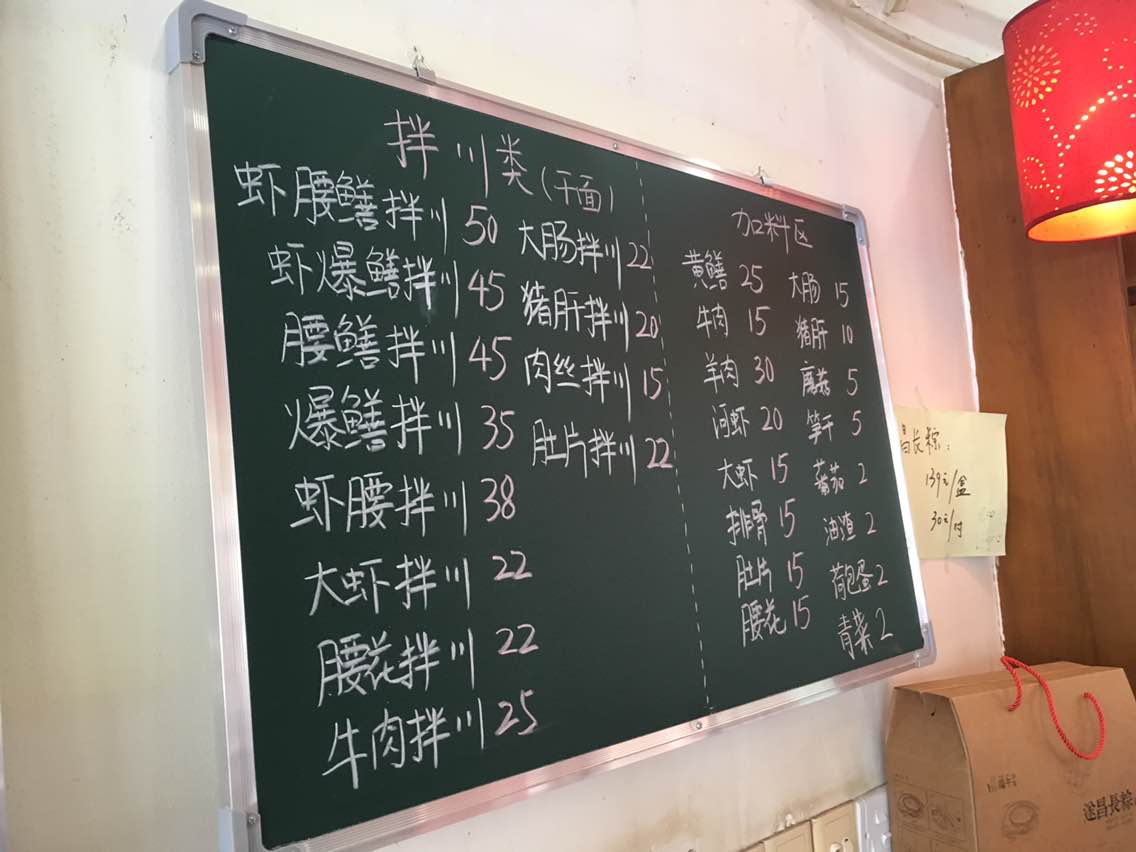 拌川类(干面)
虾腰鳝拌川 50
虾爆鳝拌川 45
腰鳝拌川 45
爆鳝拌川 35
虾腰拌川 38
大虾拌川 22
腰花拌川 22
牛肉拌川 25
大肠拌川 22
猪肝拌川 20
肉丝拌川 15
肚片拌川 22
加料区
黄鳝 25
牛肉 15
羊肉 30
河虾 20
大虾 15
排骨 15
肚片 15
腰花 15
大肠 15
猪肝 10
蘑菇 5
笋干 5
蕃茄 2
油渣 2
荷包蛋 2
青菜 2
昌长粽:
139元/盒
30元/付
遂昌長粽